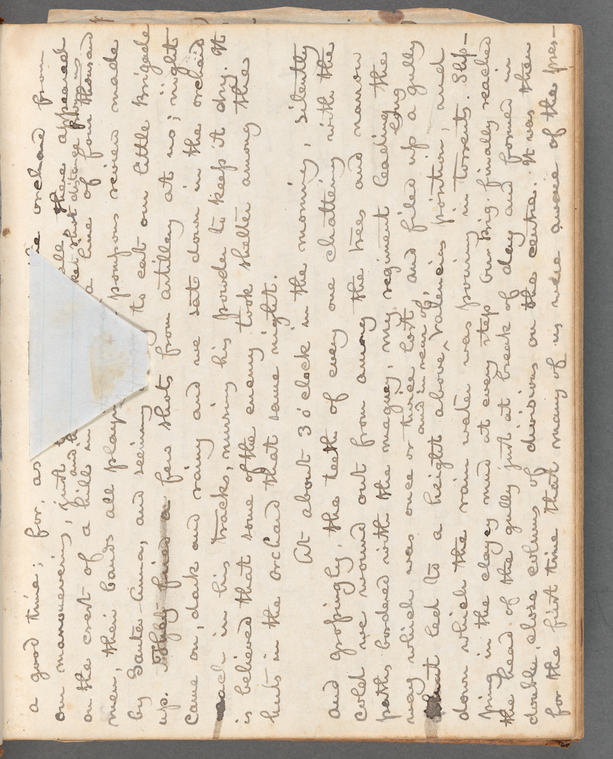 a good time; for as orchard from
our manoeuvering, just there appeared
and
on the crest of a hills in a line of four thousand
men, their bands all play pompous review made
by Santa-Anna, and seeming to eat our little Brigade
up. They fired a few shots from artillery at us; night
came on, dark and rainy and we sat down in the orchard
each in his tracks, nursing his powder to keep it dry. It
is believed that some of the enemy took shelter among the
huts in the orchard that same night.
At about 3 o'clock in the morning, silently
and gropingly, the teeth of every one chattering with the
cold we wound out from among the trees and narrow
paths bordered with the maguey, my regiment leading the
long
way which was once or twice lost and filed up a gully
and in rear of,
that led to a height above, Valencias position, and
down which the rain water was pouring in torrents. Slip-
ping in the clayey mud at every step our Brig. finally reached
the head of the gully just at break of day and formed in
double, close column of divisions on the centre. It was then
for the first time that many of us were aware of the pres-